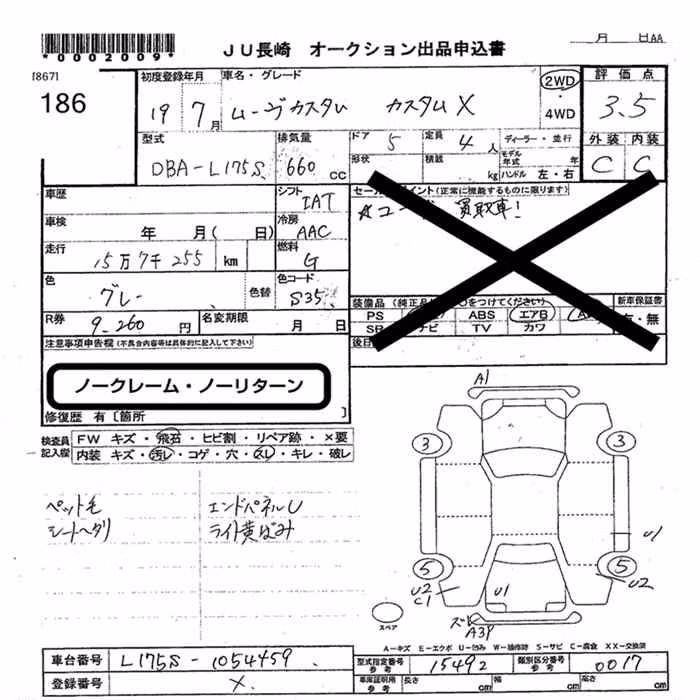 *0002009*
JU長崎 オークション出品申込書
月 日AA
[867]
186
初度登録年月 車名・グレード 2WD 4WD 評価点
19 7月 ムーヴカスタム カスタムX 3.5
型式 排気量 ドア 5 定員 4人 ディーラー・並行 外装 内装
DBA-L175S 660cc 形状 積載 kg モデル年式 年 ハンドル 左・右 C C
車歴 シフト IAT セールスポイント(正常に機能するものに限ります)
車検 年 月( 日) 冷房 AAC 買取車!
走行 15万7千255 km 燃料 G
色 グレー 色替 色コード S35
装備品 (純正品 をつけてください) 新車保証書
R券 9,260円 名変期限 月 日 PS ABS エアB 有・無
SR ナビ TV カワ
注意事項申告欄 (不具合内容等は具体的に記入して下さい) 後日
ノークレーム・ノーリターン
修復歴 有 [箇所 ]
検査員記入欄 FW キズ・飛石・ヒビ割・リペア跡・×要
内装 キズ・汚レ・コゲ・穴・スレ・キレ・破レ
ペット毛 エンドパネルU
シートヘタリ ライト黄ばみ
A1
3 3
U1
5 5
U2 C1 U1 U2
スペア ズレ A3P
A-キズ E-エクボ U-凹み W-補修跡 S-サビ C-腐食 XX-交換済
車台番号 L175S-1054459 型式指定番号 参考 15492 類別区分番号 参考 0017
登録番号 × 車庫証明用 参考 長さ cm 幅 cm 高さ cm